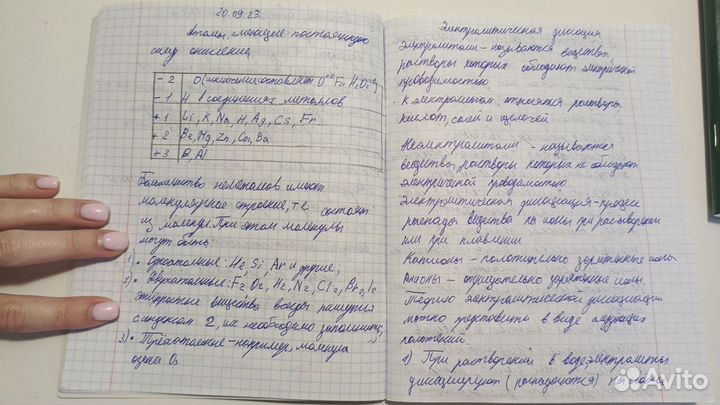 20.09.23.
Атомы, имеющие постоянную
силу окисления
-2 O (исключение составляет O⁺²F₂, H₂O₂⁻¹
-1 H в соединениях металлов
+1 Li, K, Na, H, Ag, Cs, Fr
+2 Be, Mg, Zn, Ca, Ba
+3 B, Al
Большинство неметаллов имеют
молекулярное строение, т.е состоят
из молекул. При этом молекулы
могут быть:
1) • Одноатомные: He, Si, Ar и другие,
2) • Двухатомные: F₂ O₂, H₂, N₂, Cl₂, Br₂, I₂
вещества всегда пишутся
с индексом 2, их необходимо запомнить,
3) • Трёхатомные - например, молекула
озона O₃
Электролитическая дисоция
Электролитами - называются вещества,
растворы которых обладают электрической
проводимостью
- К электролитам относятся растворы
кислот, солей и щелочей
Неэлектролитами - называются
вещества, растворы которых не обладают
электрической проводимостью
Электролитическая диссоциация - процесс
распада вещества на ионы при растворении
или при плавлении
Катионы - положительно заряженные ионы
Анионы - отрицательно заряженные ионы.
Теорию электролитической диссоциации
можно представить в виде следующих
положений
1) При растворении в воде, электролиты
диссоциируют (распадаются) на
Avito